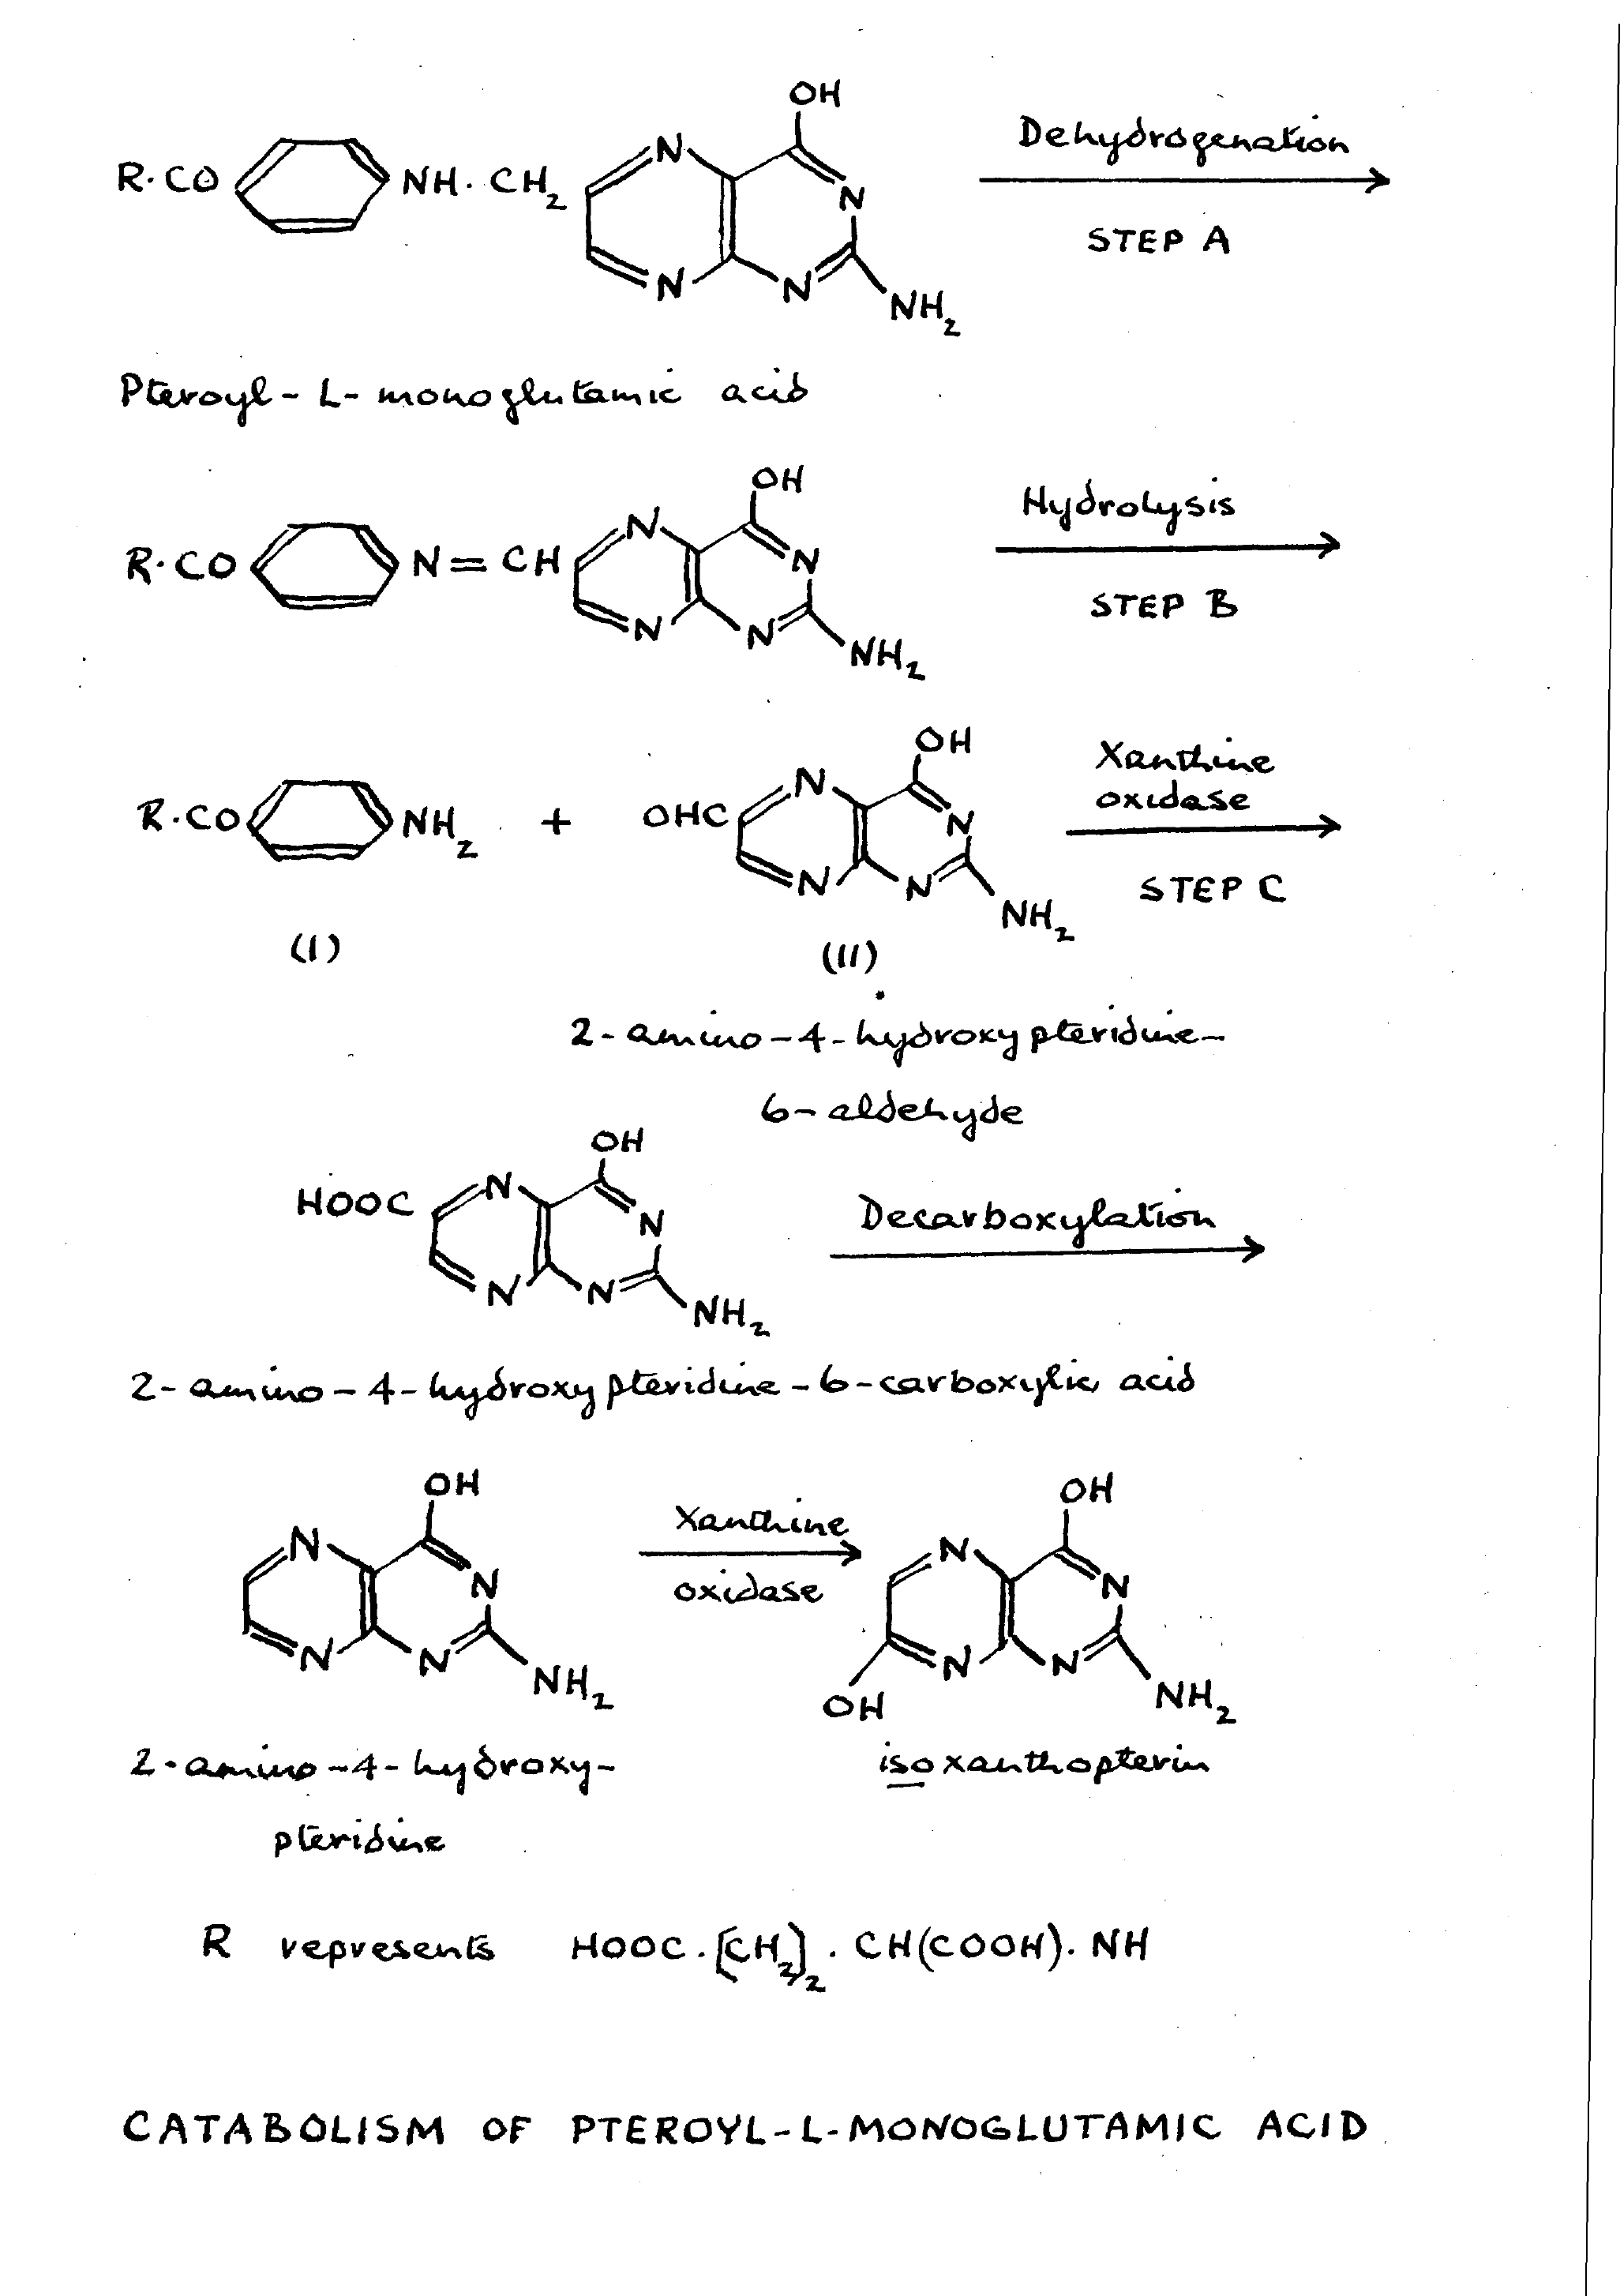 OH
R·CO NH·CH2 N N N N NH2
Dehydrogenation
STEP A
Pteroyl-L-monoglutamic acid
OH
R·CO N=CH N N N N NH2
Hydrolysis
STEP B
OH
R·CO NH2 + OHC N N N N NH2
Xanthine
oxidase
STEP C
(I) (II)
2-amino-4-hydroxypteridine-
6-aldehyde
OH
HOOC N N N N NH2
Decarboxylation
2-amino-4-hydroxypteridine-6-carboxylic acid
OH
N N N N NH2
Xanthine
oxidase
OH
N N N N NH2
OH
2-amino-4-hydroxy-
pteridine
isoxanthopterin
R represents HOOC.[CH2]2.CH(COOH).NH
CATABOLISM OF PTEROYL-L-MONOGLUTAMIC ACID